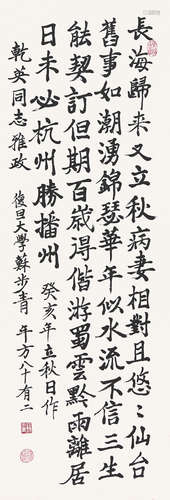 長海歸来又立秋病妻相對且悠〻仙台
舊事如潮湧錦瑟華年似水流不信三生
能契訂但期百歲得偕游蜀雲黔雨離居
日未必杭州勝播州
癸亥年立秋日作
乾英同志雅政
復旦大學蘇步青
年方八十有二